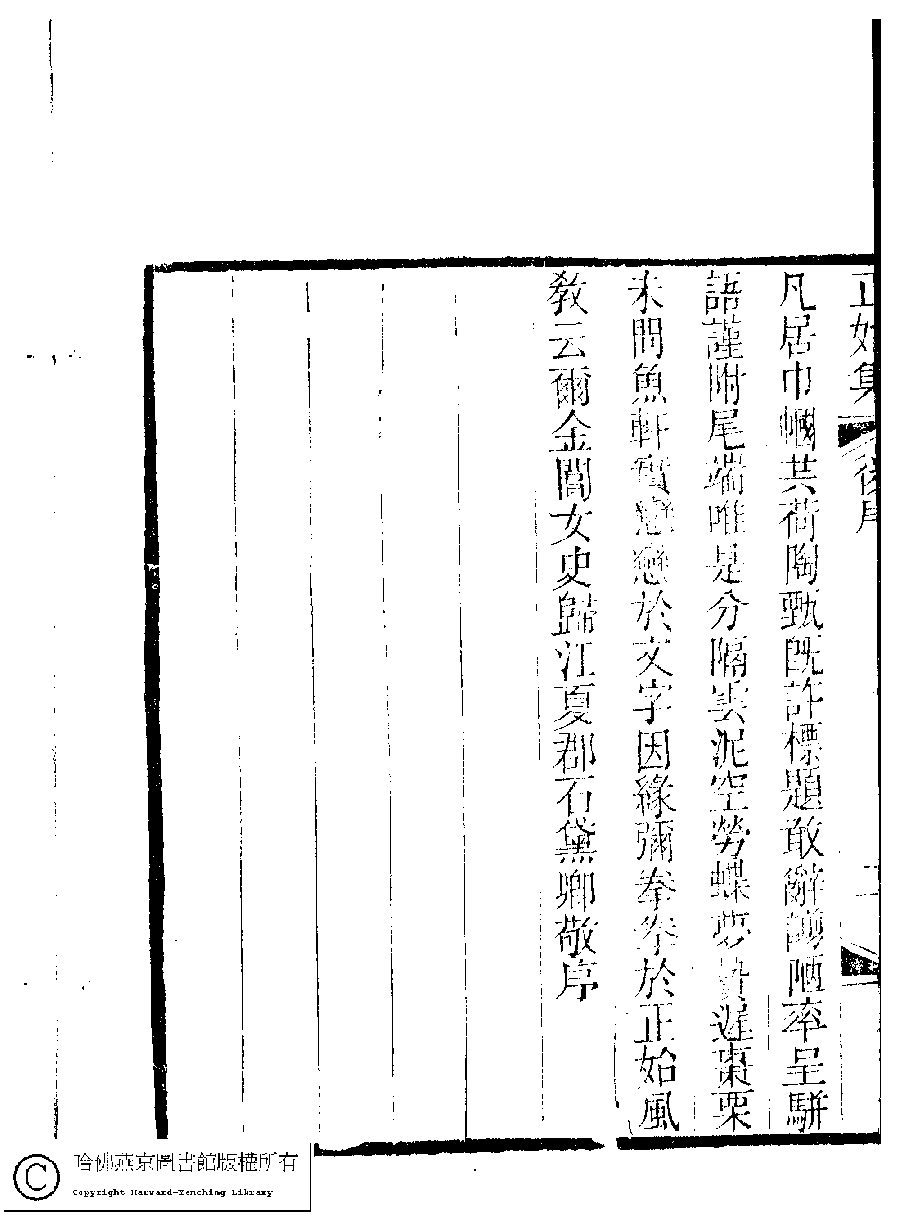 正始集 後序 二
凡居巾幗共荷陶甄既許標題敢辭譾陋率呈駢
語謹附尾端唯是分隔雲泥空勞蝶夢贄遲棗栗
未問魚軒實戀戀於文字因緣彌拳拳於正始風
教云爾金閶女史歸江夏郡石黛卿敬序
哈佛燕京圖書館版權所有
Copyright Harvard-Yenching Library